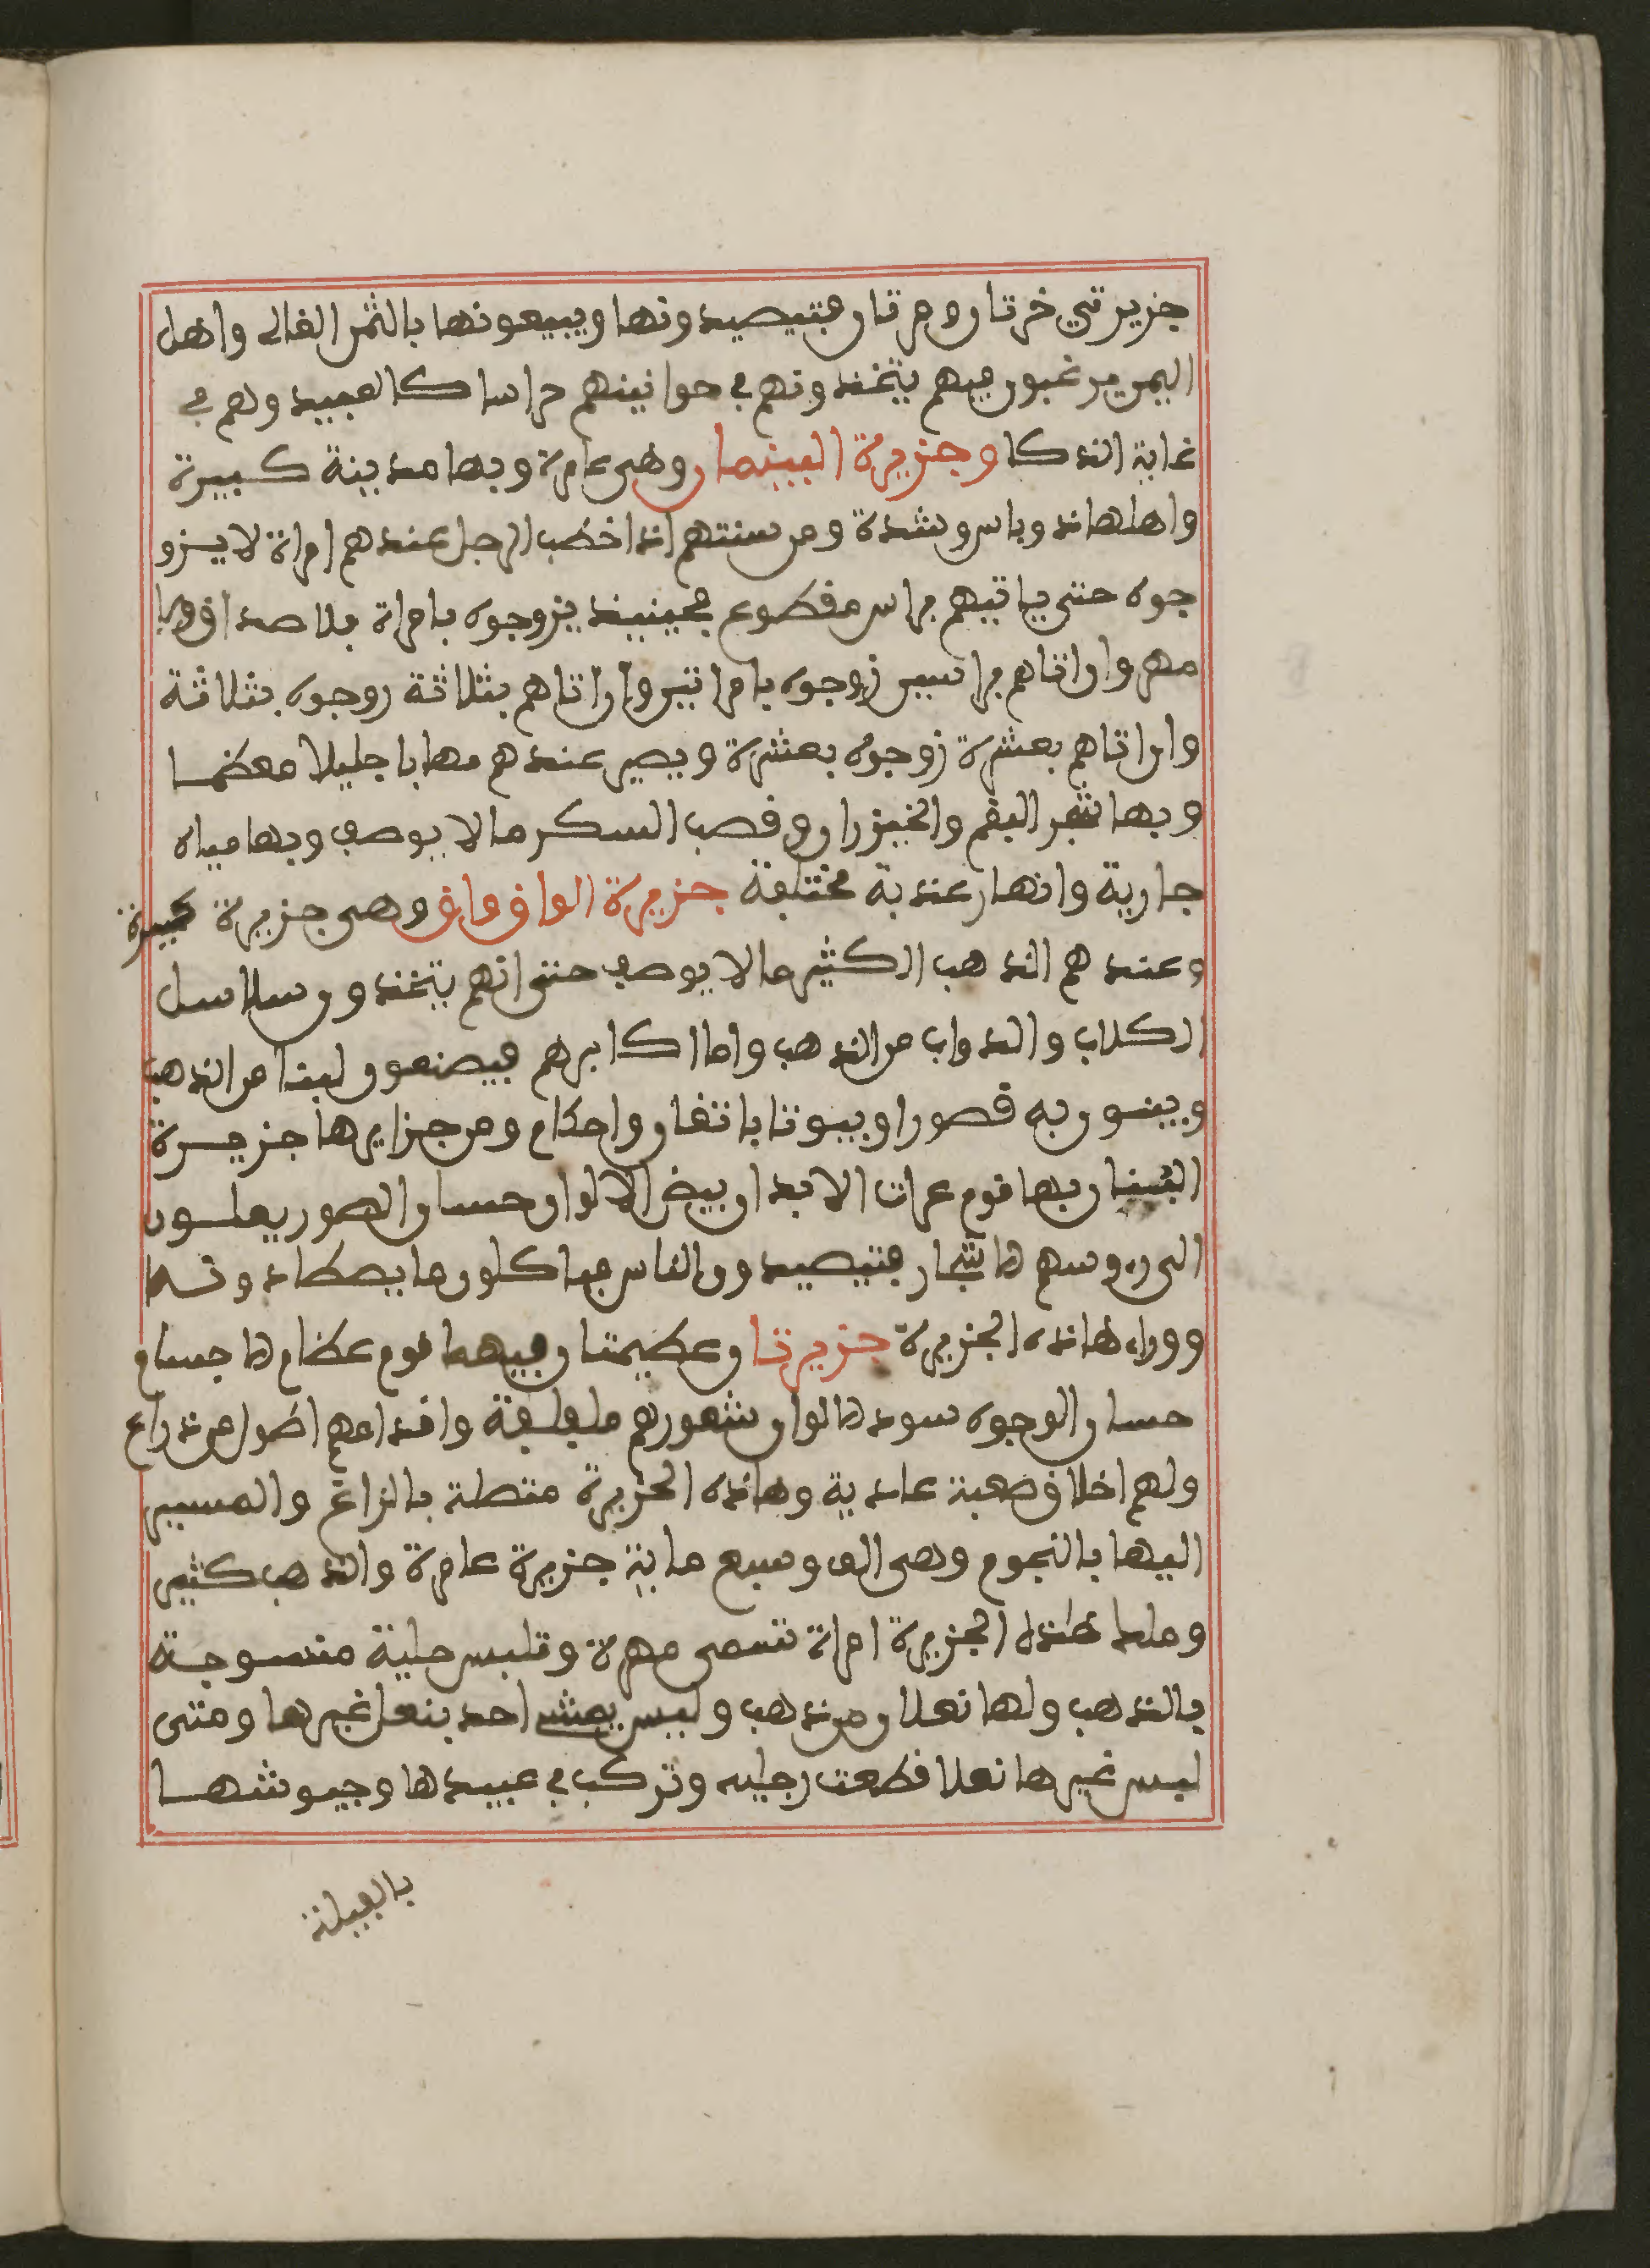 جزيرتي خرتان ومرتان فتيصيدونها ويبيعونها بالثمن الغالي واهل
اليمن يرغبون فيهم يتخذونهم في حوانيتهم حراسا كالعبيد وهم في
غاية الذكا وجزيرة البينمان وهي عامرة وبها مدينة كبيرة
واهلها ذو باس وشدة ومن سنتهم اذا خطب الرجل عندهم امراة لا يزو
جوه حتى ياتيهم براس مقطوع فحينيذ يزوجوه بامراة بلا صداق ولا
مهر وان اتاهم براسين زوجوه بامراتين وان اتاهم بثلاثة زوجوه بثلاثة
وان اتاهم بعشرة زوجوه بعشرة ويصير عندهم مهابا جليلا معظما
وبها شجر البقم والخيزران وقصب السكر ما لا يوصف وبها مياه
جارية وانهار عذبة مختلفة جزيرة الواق واق وهي جزيرة كبيرة
وعندهم الذهب الكثير ما لا يوصف حتى انهم يتخذون سلاسل
الكلاب والدواب من الذهب واما اكابرهم فيصنعون لبنا من الذهب
ويبنون به قصورا وبيوتا باتقان واحكام ومن جزايرها جزيرة
البنان بها قوم عرات الابدان بيض الالوان حسان الصور يعلون
الى روسهم الاشجار فتيصيدون الناس فياكلون ما يصطادونه
ووراء هاذه الجزيرة جزيرتان عظيمتان فيهما قوم عظام الاجسام
حسان الوجوه سود الالوان شعورهم مفلفلة واقدامهم اطول من ذراع
ولهم اخلاق صعبة عادية وهاذه الجزيرة متصلة بالزاغ والمسير
اليها بالنجوم وهي الف وسبع ماية جزيرة عامرة والذهب كثير
وملك هاذه الجزيرة امراة تسمى مهرة وتلبس حلية منسوجة
بالذهب ولها نعلان من ذهب وليس يمشي احد بنعل غيرها ومتى
لبس غيرها نعلا قطعت رجليه وتركب في عبيدها وجيوشها
بالفيلة